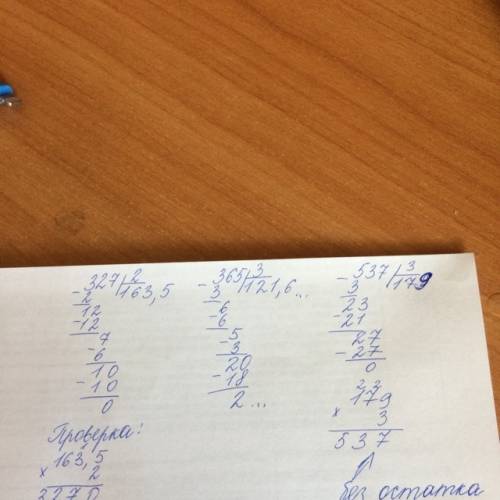 327 | 2
- 2 | 163,5
12
- 12
7
- 6
10
- 10
0
Проверка:
163,5
× 2
3270
365 | 3
- 3 | 121,6...
6
- 6
5
- 3
20
- 18
2...
537 | 3
- 3 | 179
23
- 21
27
- 27
0
2 2
179
× 3
537
без остатка